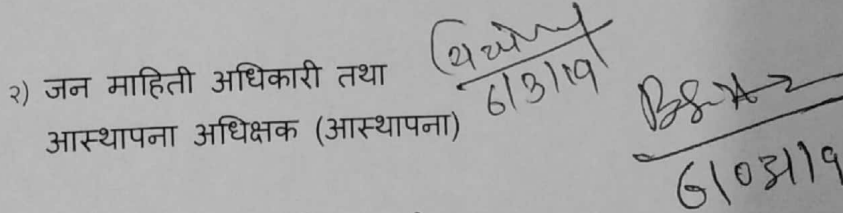 २) जन माहिती अधिकारी तथा
आस्थापना अधिक्षक (आस्थापना)
6/3/19
6/03/19